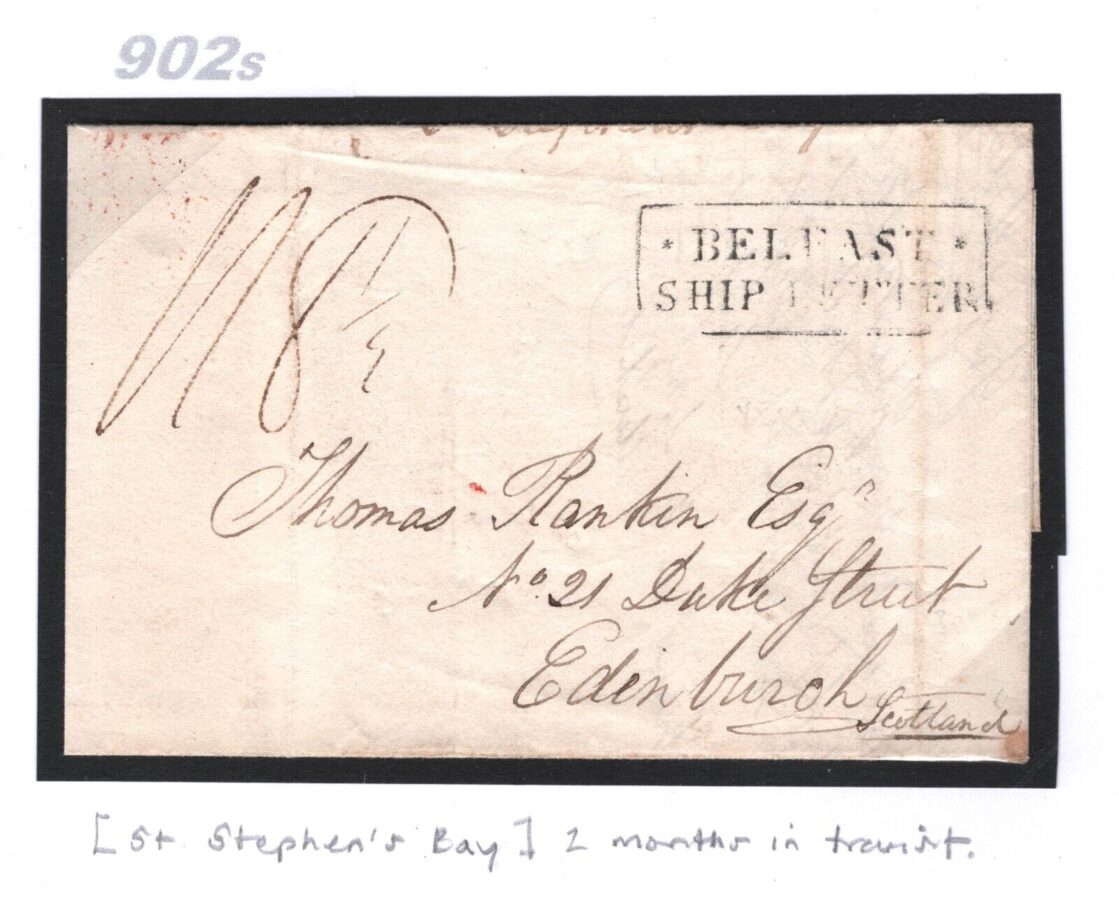 902s
BELFAST
SHIP LETTER
1/8 1/2
Thomas Rankin Esqr
No. 21 Duke Street
Edinburgh
Scotland
[St Stephen's Bay] 2 months in transit.